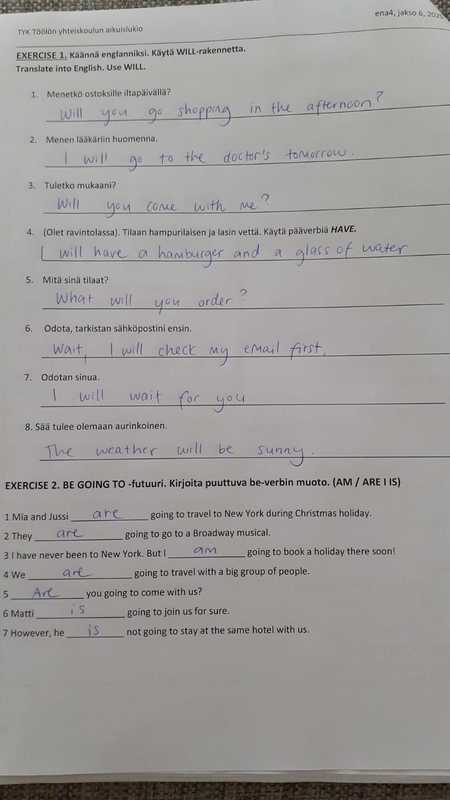 TYK Töölön yhteiskoulun aikuislukio
ena4, jakso 6, 2025
EXERCISE 1. Käännä englanniksi. Käytä WILL-rakennetta.
Translate into English. Use WILL.
1. Menetkö ostoksille iltapäivällä?
Will you go shopping in the afternoon?
2. Menen lääkäriin huomenna.
I will go to the doctor's tomorrow.
3. Tuletko mukaani?
Will you come with me?
4. (Olet ravintolassa). Tilaan hampurilaisen ja lasin vettä. Käytä pääverbiä HAVE.
I will have a hamburger and a glass of water
5. Mitä sinä tilaat?
What will you order?
6. Odota, tarkistan sähköpostini ensin.
Wait, I will check my email first.
7. Odotan sinua.
I will wait for you
8. Sää tulee olemaan aurinkoinen.
The weather will be sunny.
EXERCISE 2. BE GOING TO -futuuri. Kirjoita puuttuva be-verbin muoto. (AM / ARE I IS)
1 Mia and Jussi are going to travel to New York during Christmas holiday.
2 They are going to go to a Broadway musical.
3 I have never been to New York. But I am going to book a holiday there soon!
4 We are going to travel with a big group of people.
5 Are you going to come with us?
6 Matti is going to join us for sure.
7 However, he is not going to stay at the same hotel with us.